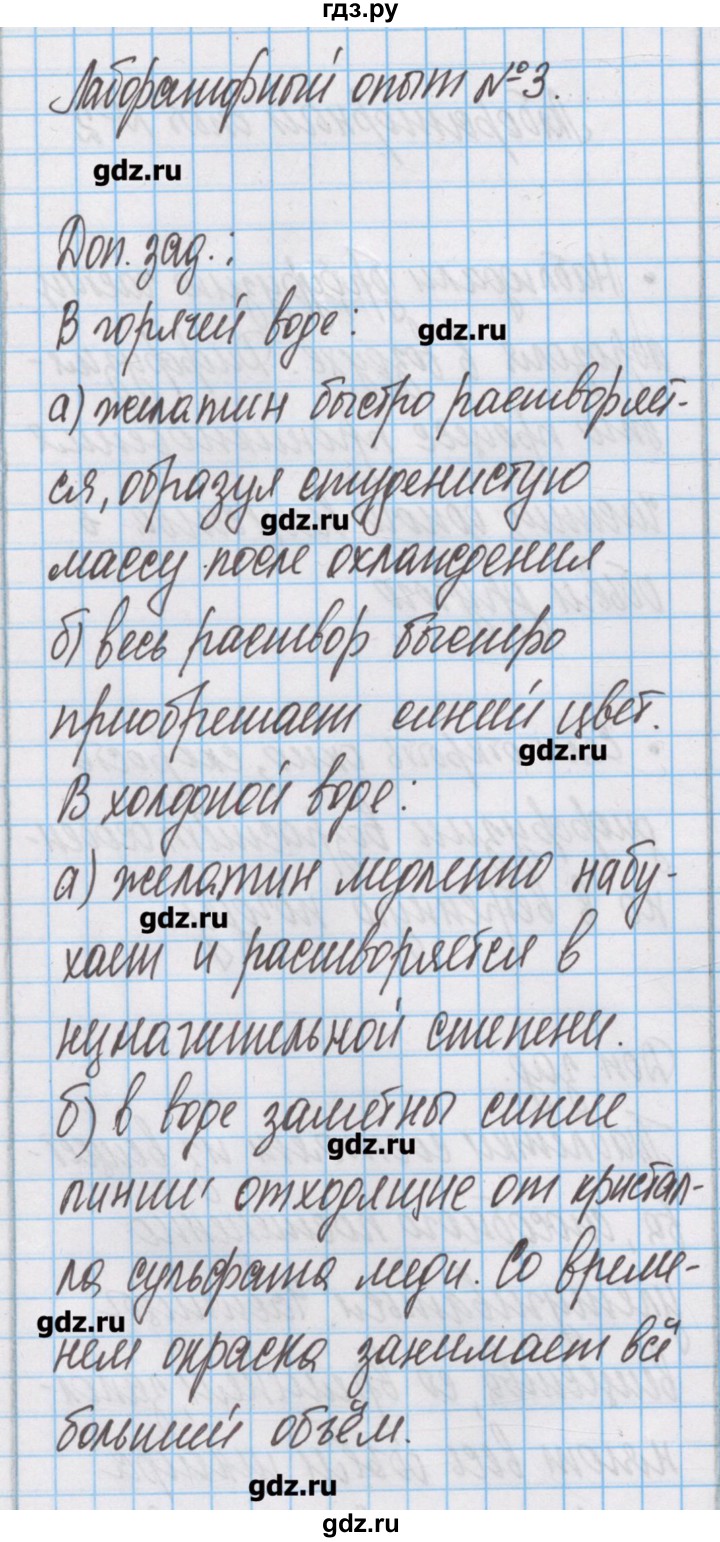 гдз.ру
Лабораторный опыт №3.
gdz.ru
Доп. зад.:
В горячей воде:
gdz.ru
а) желатин быстро растворяет-
ся, образуя студенистую
gdz.ru
массу после охлаждения
б) весь раствор быстро
приобретает синий цвет.
gdz.ru
В холодной воде:
а) желатин медленно набу-
gdz.ru
хает и растворяется в
нузначительной степени.
б) в воде заметны синие
gdz.ru
линии отходящие от кристал-
ла сульфата меди. Со време-
gdz.ru
нем окраска занимает всё
больший объём.
gdz.ru
gdz.ru